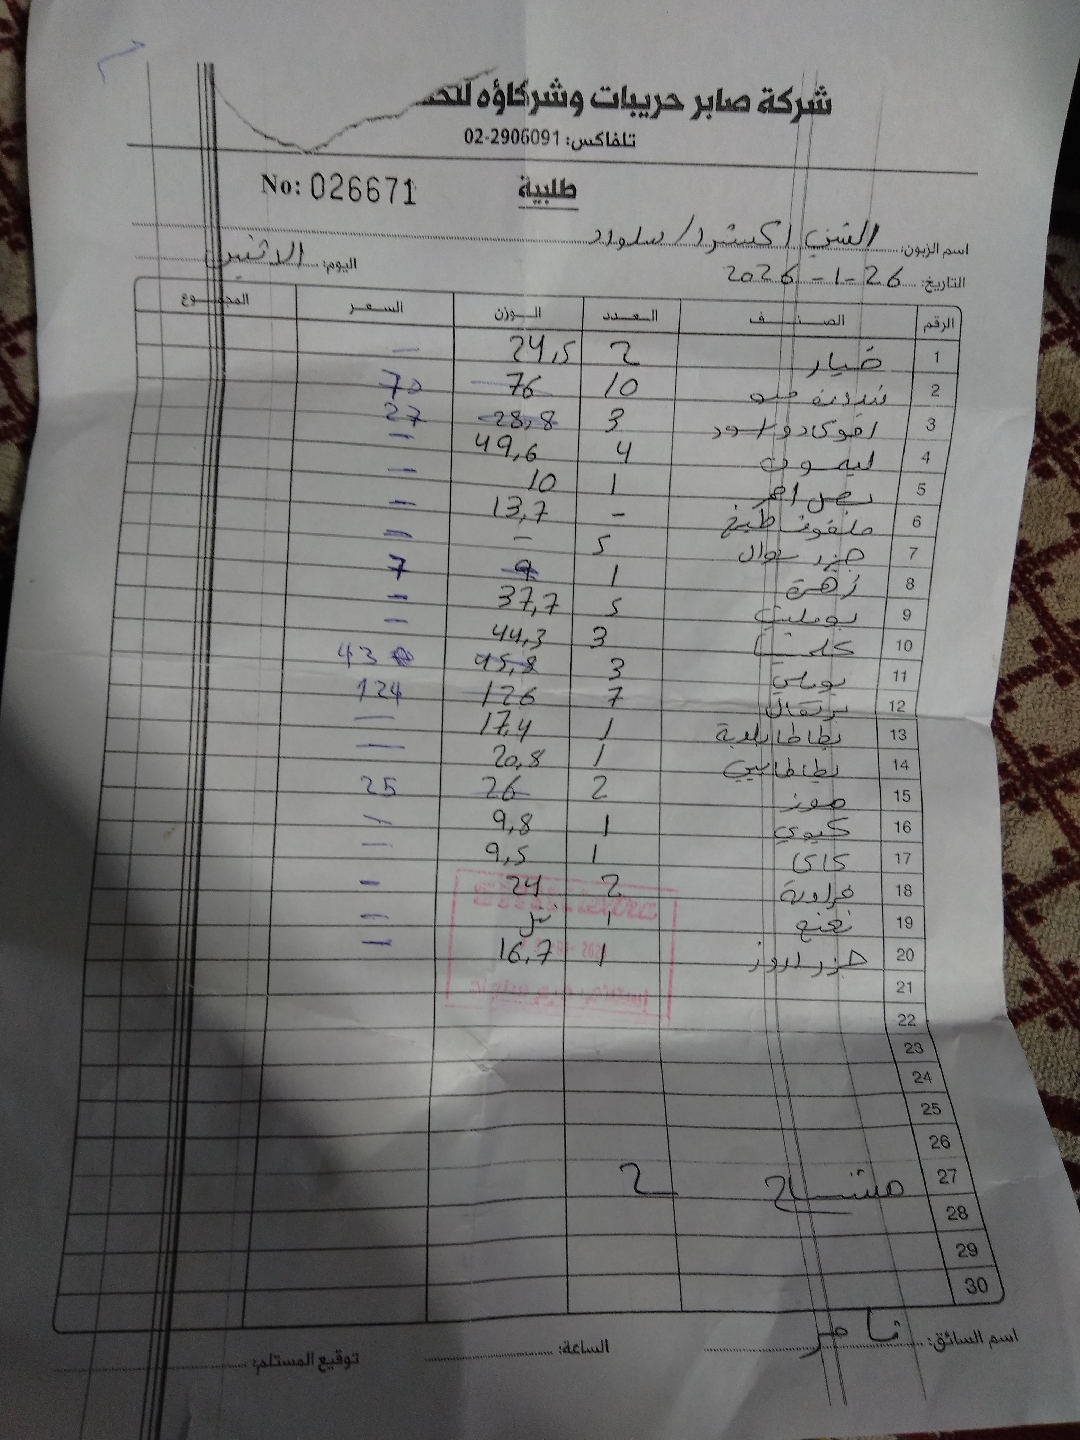 شركة صابر حريبات وشركاؤه للخـ
تلفاكس: 02-2906091
No: 026671 طلبية
اسم الزبون: الشني اكسترا / سلواد
اليوم: الاثنين
التاريخ: 26-1-2026
الرقم الصنف العدد الوزن السعر المجموع
1 خيار 2 24,5 –
2 بندورة 10 76 70
3 افوكادو اسود 3 28,8 27
4 ليمون 4 49,6 –
5 بصل احمر 1 10 –
6 ملفوف طبخ – 13,7 –
7 جزر شوال 5 – –
8 زهرة 1 9 7
9 بوملي 5 37,7 –
10 كلمنتينا 3 44,3 –
11 بوملي 3 45,8 43
12 برتقال 7 126 124
13 بطاطا بلدية 1 17,4 –
14 بطاطا 1 20,8 –
15 موز 2 26 25
16 كيوي 1 9,8 –
17 كاكا 1 9,5 –
18 2 24 –
19 نعنع 1 –
20 جزر 1 16,7 –
21
22
23
24
25
26
27 مشتاح 2
28
29
30
اسم السائق: تامر الساعة: توقيع المستلم: